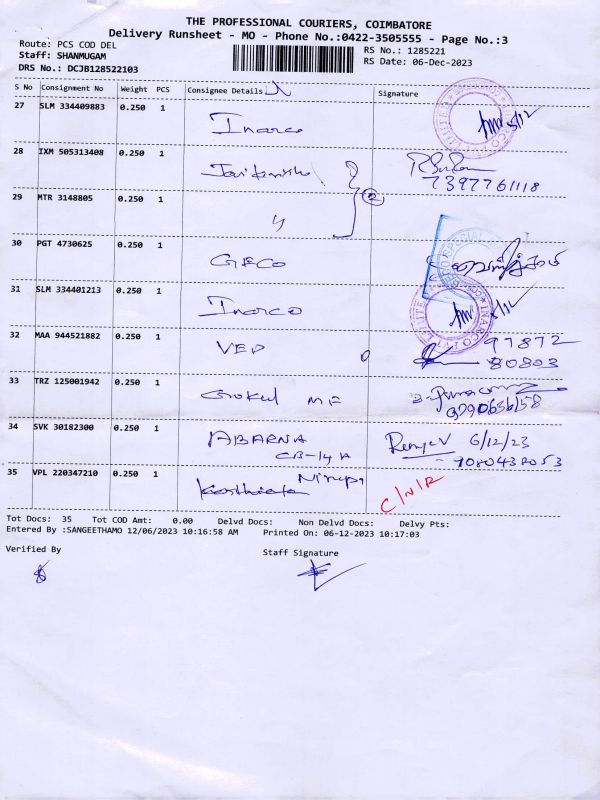 THE PROFESSIONAL COURIERS, COIMBATORE
Delivery Runsheet - MO - Phone No.:0422-3505555 - Page No.:3
Route: PCS COD DEL
RS No.: 1285221
Staff: SHANMUGAM
RS Date: 06-Dec-2023
DRS No.: DCJB128522103
S No Consignment No Weight PCS Consignee Details Signature
27 SLM 334409883 0.250 1 Inarco
28 IXM 505313408 0.250 1
7397761118
29 MTR 3148805 0.250 1 4 2
30 PGT 4730625 0.250 1 GECO
31 SLM 334401213 0.250 1 Inarco
32 MAA 944521882 0.250 1 VED 97872
80803
33 TRZ 125001942 0.250 1 Gokul
34 SVK 30182300 0.250 1 ABARNA 6/12/23
CB-14 A
35 VPL 220347210 0.250 1 C/N/R
Tot Docs: 35 Tot COD Amt: 0.00 Delvd Docs: Non Delvd Docs: Delvy Pts:
Entered By :SANGEETHAMO 12/06/2023 10:16:58 AM Printed On: 06-12-2023 10:17:03
Verified By Staff Signature